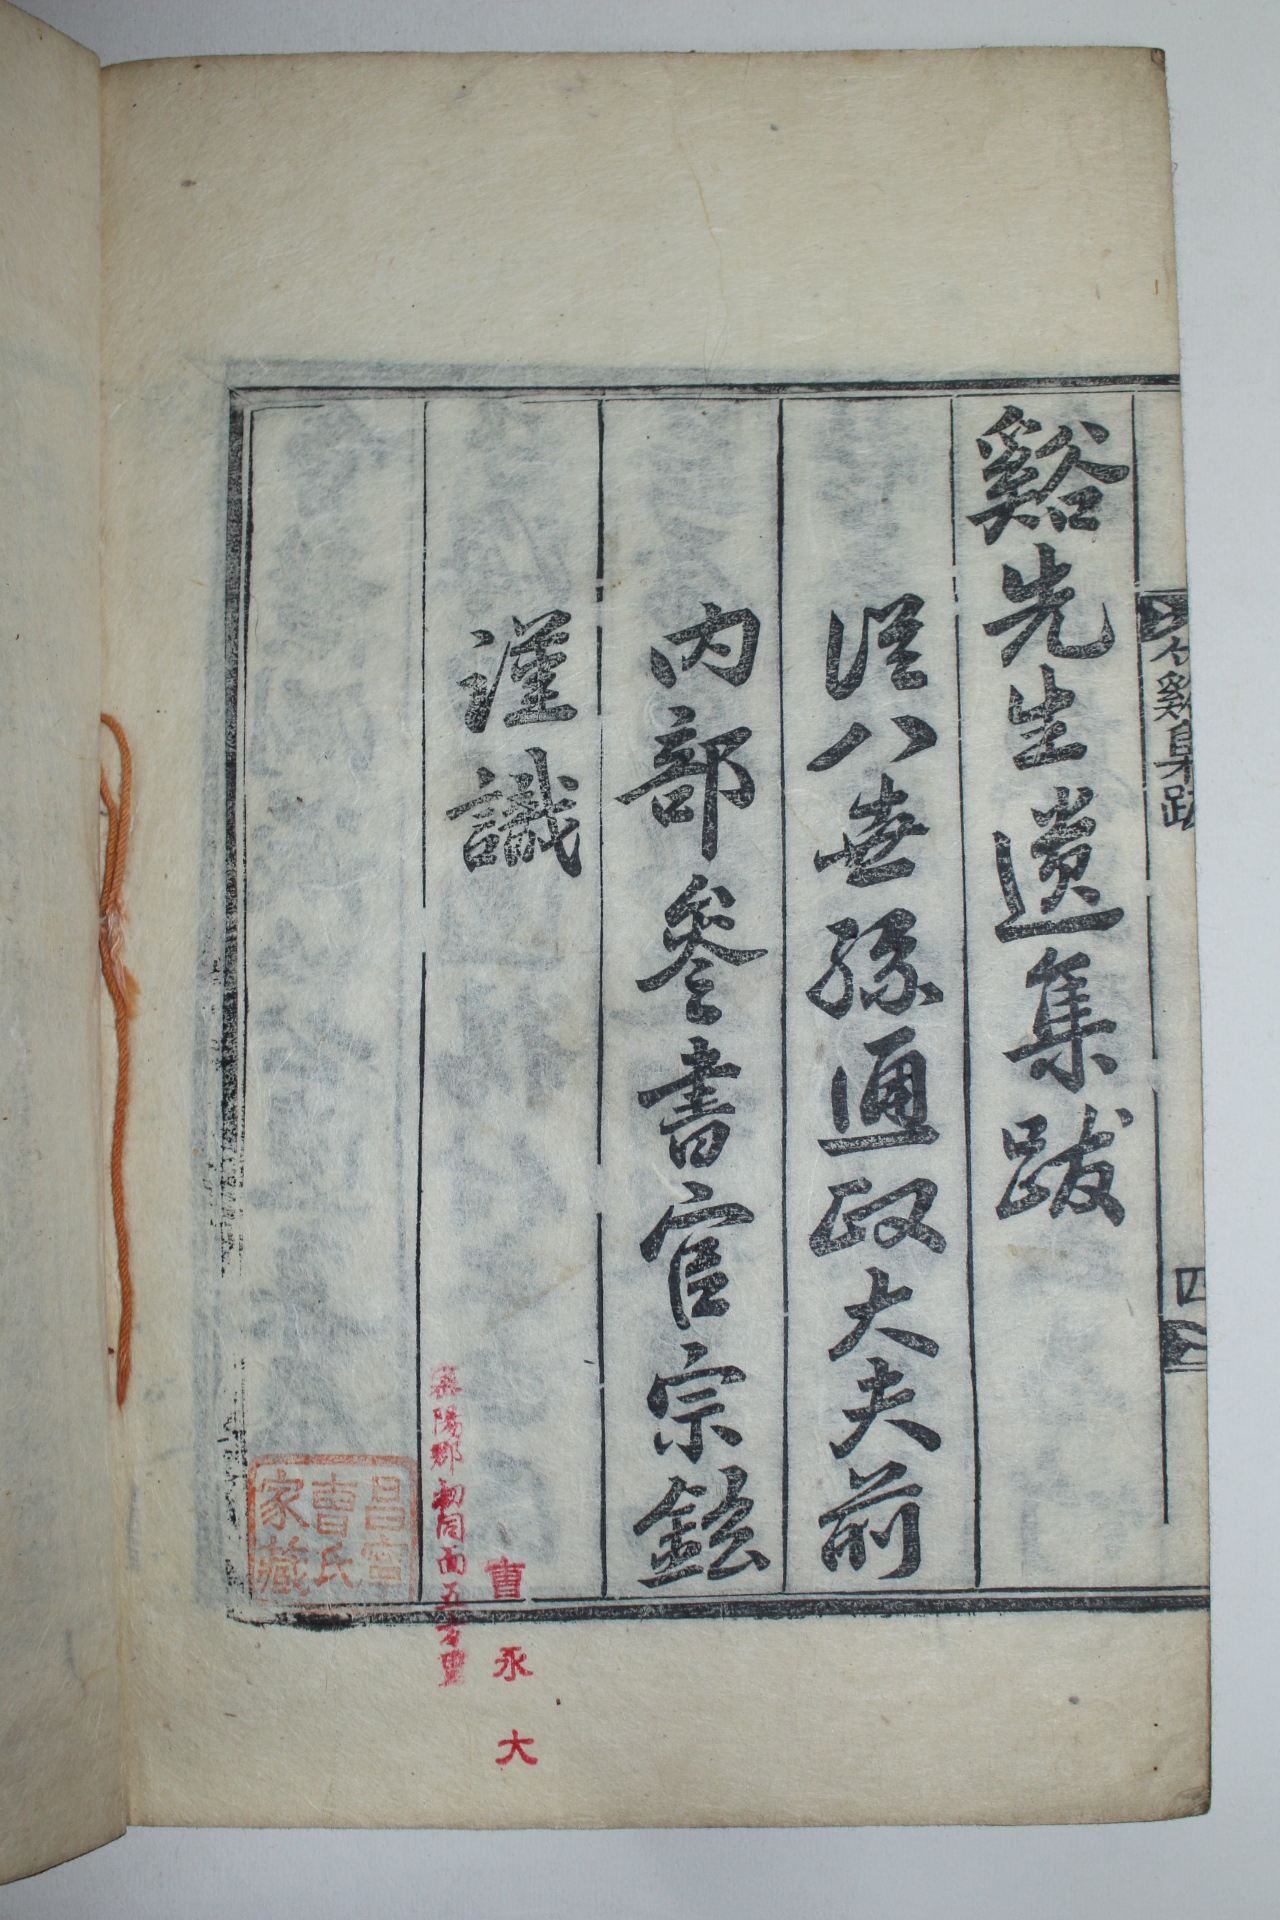 谿先生遺集跋
從八世孫通政大夫前
內部參書官宗鉉
謹識
谿集跋
四
襄陽郡 初同面五方里
曺永大
昌寧
曺氏
家藏